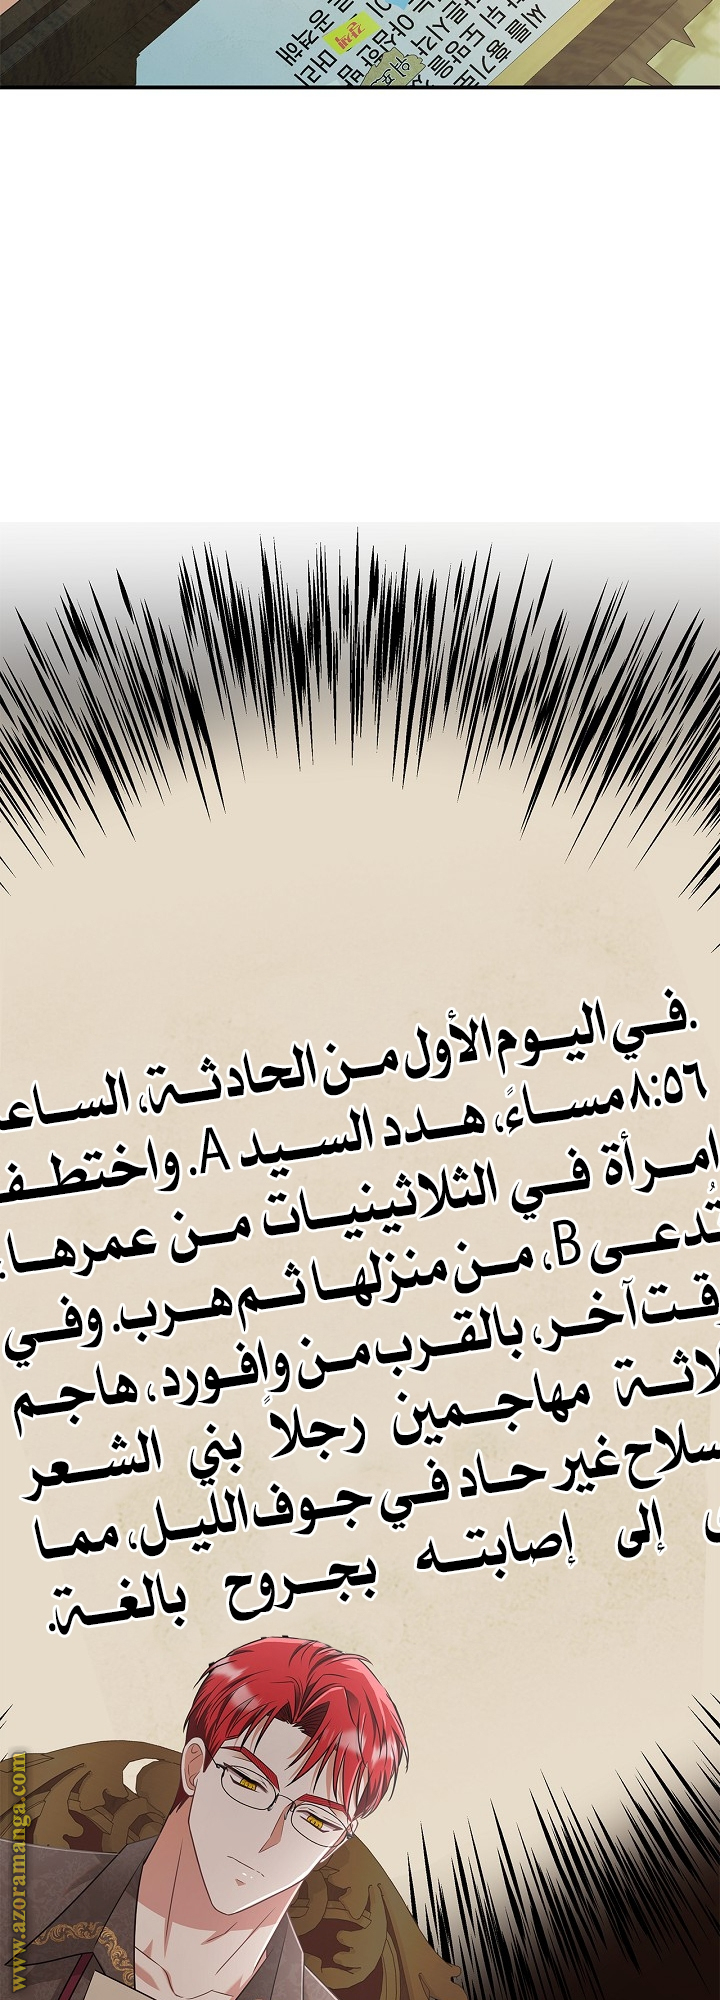 공격해
머리
강채
야심한 밤
다른 시각
도망을
씨를 흉기로
.في اليوم الأول من الحادثة، الساع
٨:٥٦ مساءً، هدد السيد A. واختطف
امرأة في الثلاثينيات من عمرها،
تُدعى B، من منزلها ثم هرب. وفي
قت آخر، بالقرب من وافورد، هاجم
لاثة مهاجمين رجلاً بني الشعر
سلاح غير حاد في جوف الليل، مما
إلى إصابته بجروح بالغة.
www.azoramanga.com